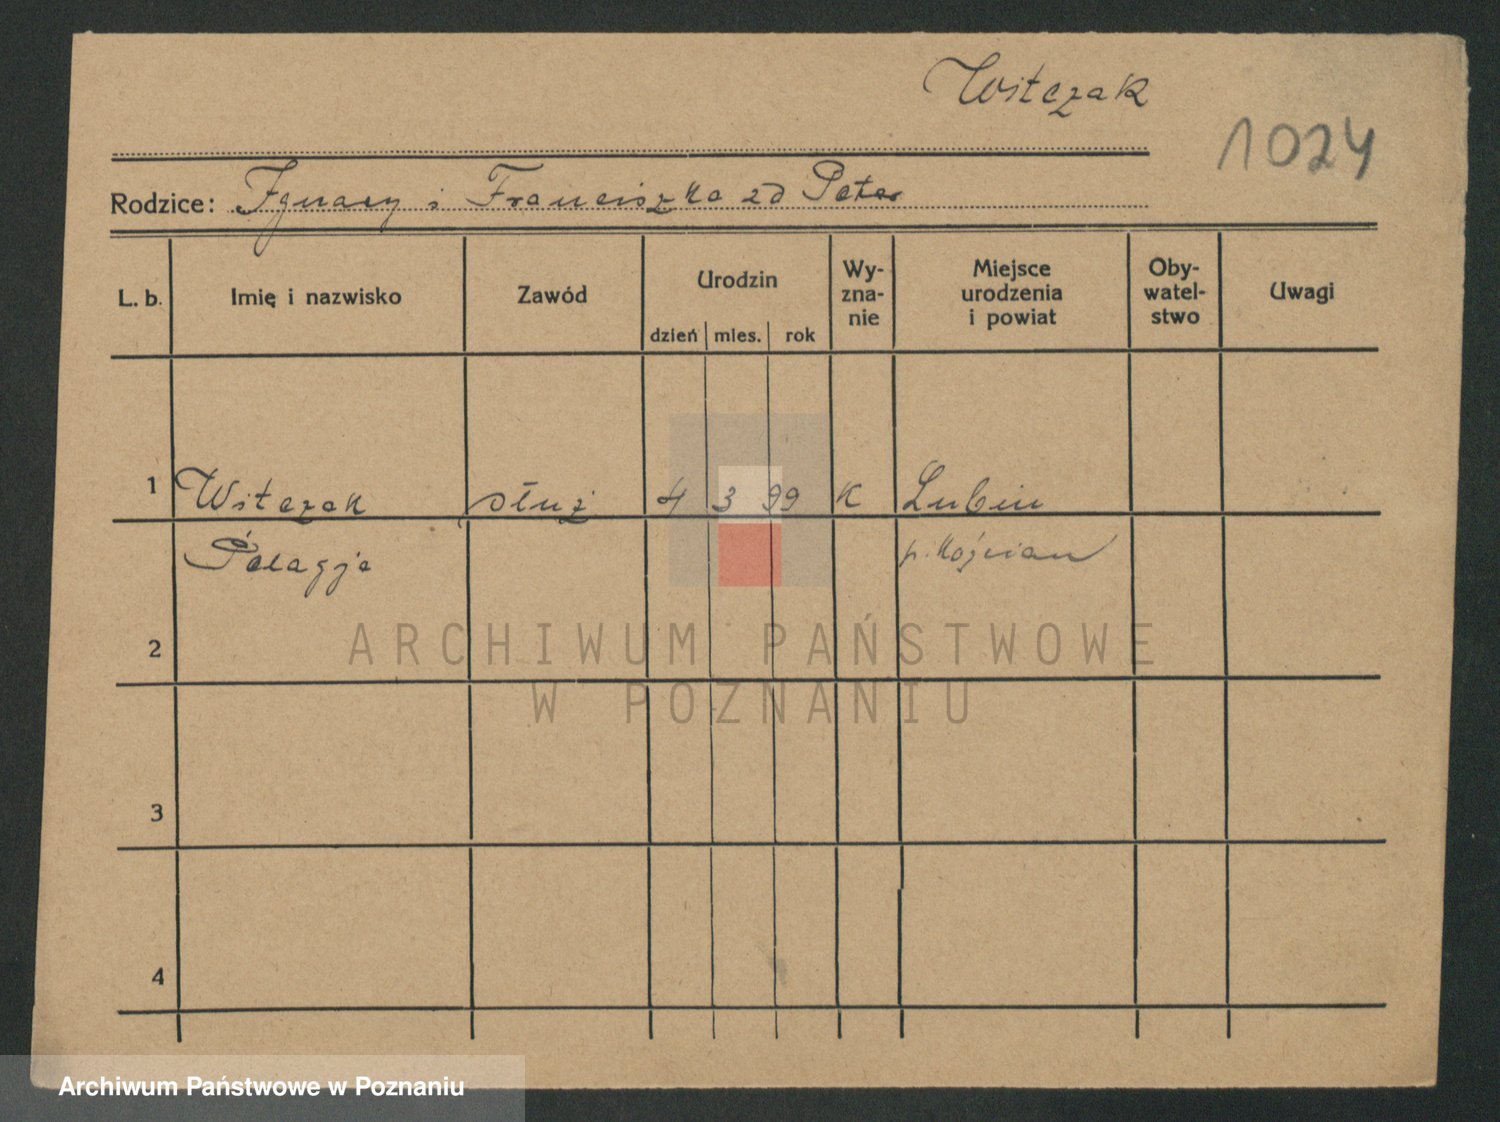 Witczak
1024
Rodzice: Ignacy i Franciszka zd Peter
L. b. Imię i nazwisko Zawód Urodzin Wy-zna-nie Miejsce urodzenia i powiat Oby-watel-stwo Uwagi
dzień mies. rok
1 Witczak służ 4 3 99 K Lubiń
Pelagja p. Kościan
2
ARCHIWUM PAŃSTWOWE
W POZNANIU
3
4
Archiwum Państwowe w Poznaniu